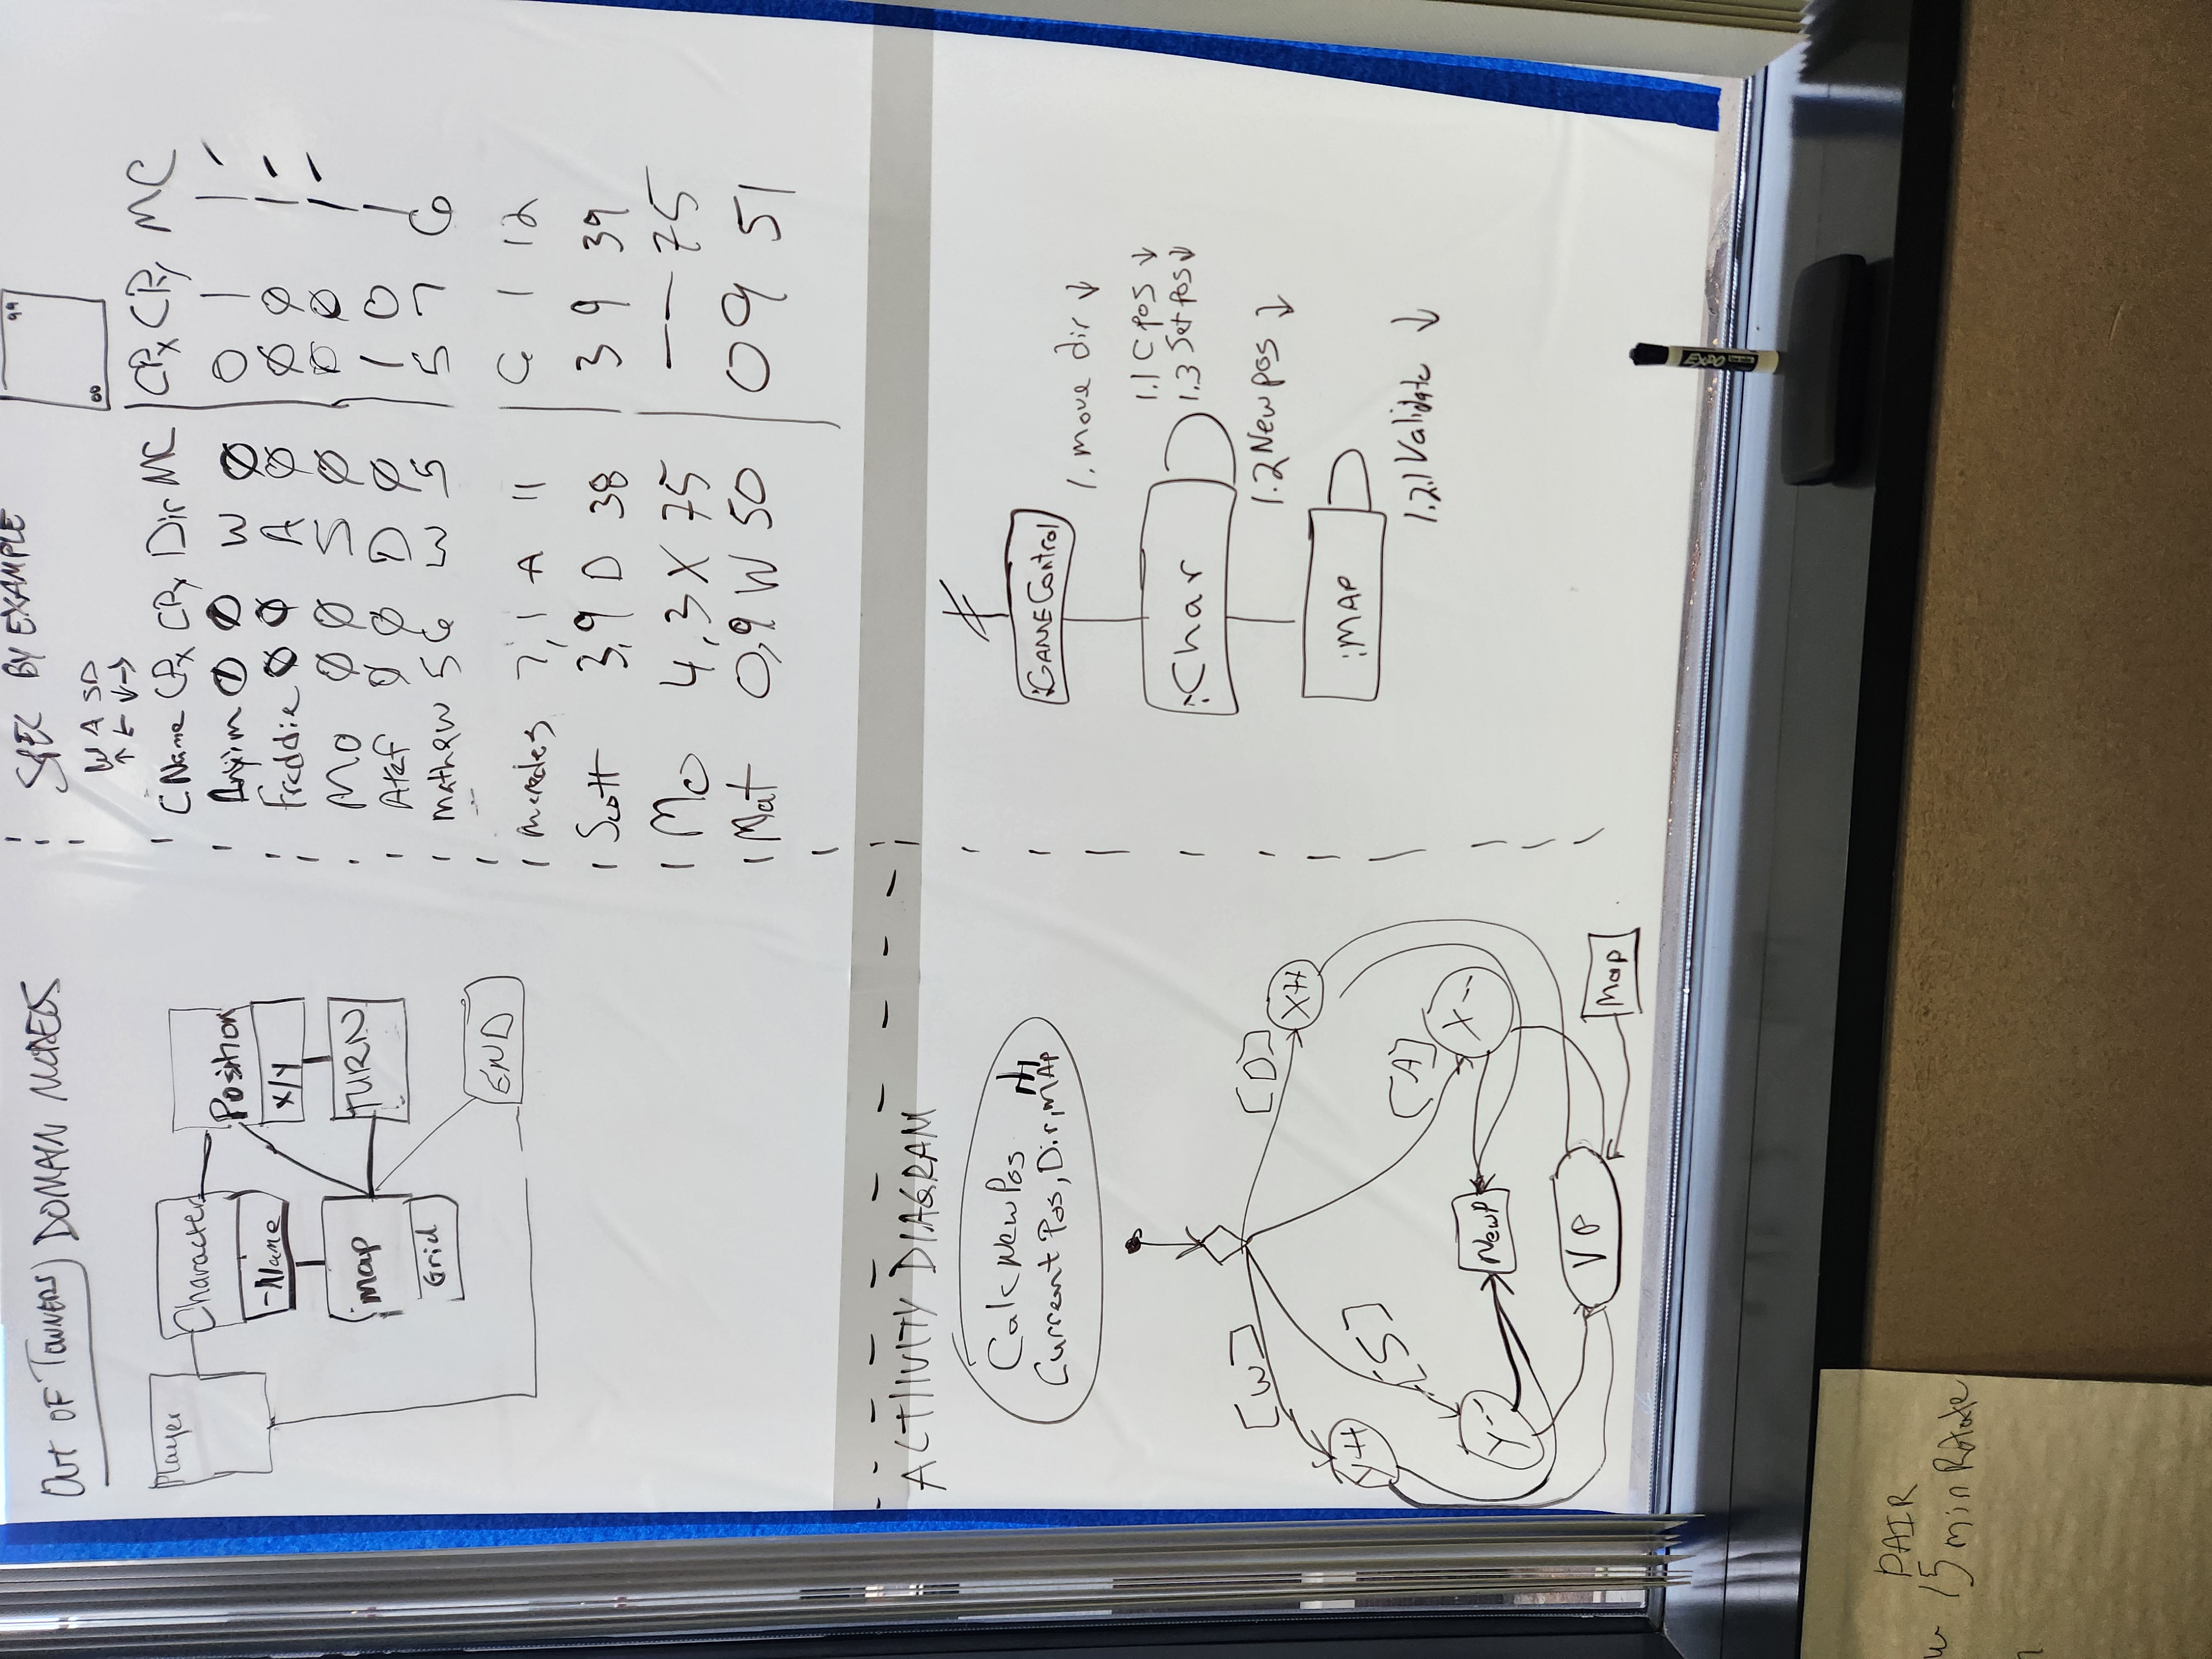 OUT OF TOWNERS) DOMAIN MODELS
Player
Character
-Name
Position
X/Y
Map
Grid
TURN
END
SPEC BY EXAMPLE
99
00
W A S D
↑ ← ↓ →
CName CPx CPy Dir MC CPx CPy MC
Ø Ø W Ø 0 1 1
Freddie Ø Ø A Ø Ø Ø 1
Mo Ø Ø S Ø Ø Ø 1
Atef Ø Ø D Ø 1 0 1
Mathew 5 6 W 5 5 7 6
Mercedes 7, 1 A 11 6 1 12
Scott 3, 9 D 38 3 9 39
Mo 4, 3 X 75 — — 75
Mat 0, 9 W 50 0 9 51
ACTIIVITY DIAGRAM
Calc New Pos
Current Pos, Dir, MAP
[W]
[D]
X++
Y++
[S]
[A]
Y--
NewP
X--
VP
Map
:GAME Control
1. move dir ↓
1.1 C pos ↓
1.3 Set pos ↓
:Char
1.2 New pos ↓
:MAP
1.2.1 Validate ↓
EXPO
PAIR
15 min Rotate